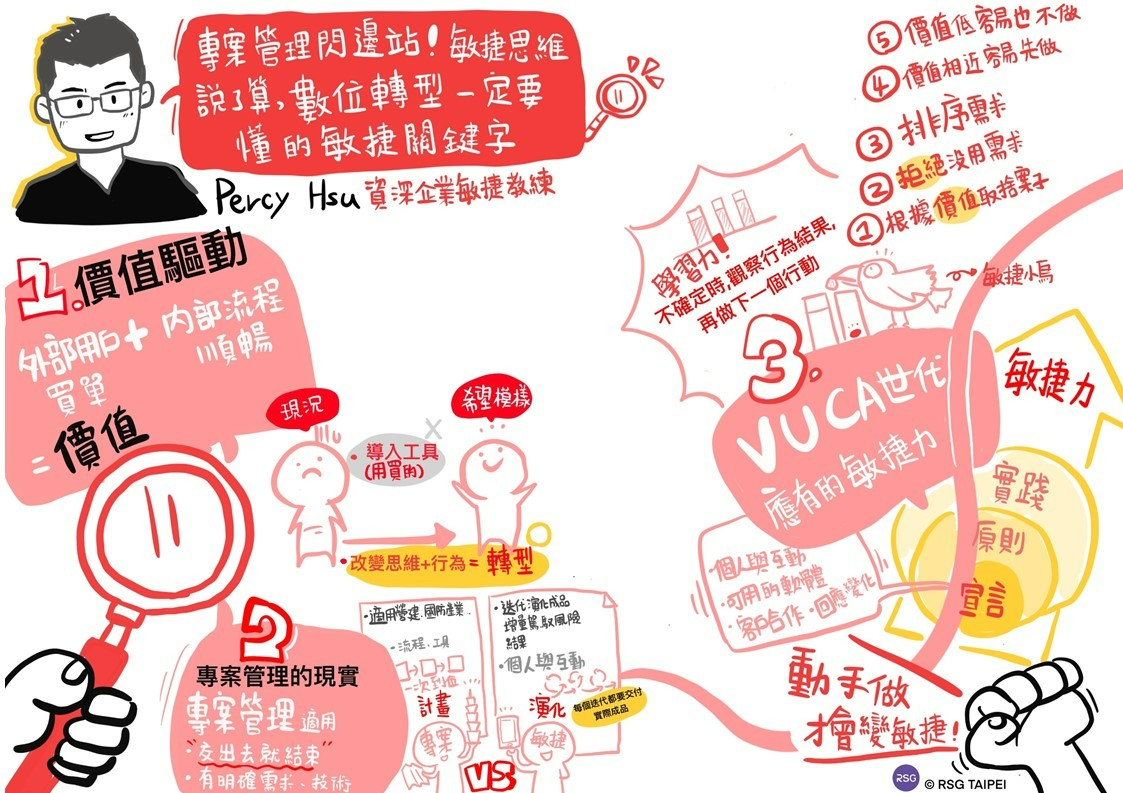 專案管理閃邊站！敏捷思維
說了算，數位轉型一定要
懂的敏捷關鍵字
Percy Hsu 資深企業敏捷教練
1.價值驅動
外部用戶+內部流程
買單 順暢
=價值
現況
希望模樣
x
·導入工具
(用買的)
·改變思維+行為=轉型
2
專案管理的現實
專案管理適用
"交出去就結束"
·有明確需求、技術
·適用營建、國防產業..
·流程、工具
一次到位
計畫
專案
VS
·迭代演化成品
增量駕馭風險
結果
·個人與互動
演化
每個迭代都要交付
實際成品
敏捷
3.
VUCA世代
應有的敏捷力
學習力！
不確定時,觀察行為結果,
再做下一個行動
⑤價值低容易也不做
④價值相近容易先做
③排序需求
②拒絕沒用需求
①根據價值取捨栗子
敏捷小鳥
敏捷力
實踐
原則
宣言
·個人與互動
·可用的軟體
·客戶合作·回應變化
動手做
才會變敏捷！
RSG © RSG TAIPEI